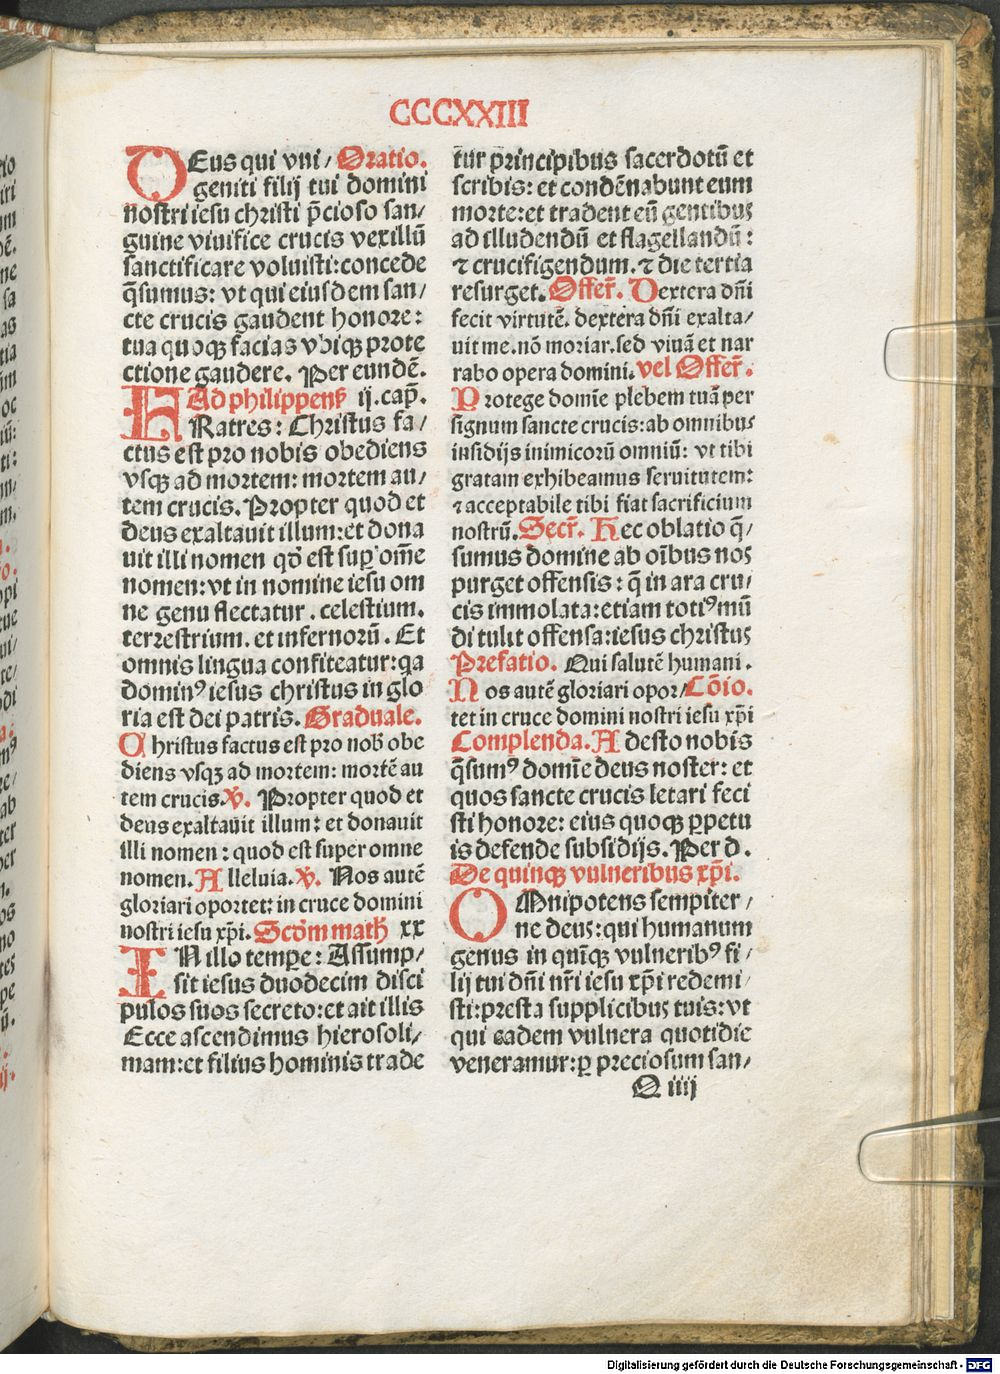 CCCXXIII
DEus qui vni/ Oratio.
geniti filij tui domini
nostri iesu christi p̄cioso san/
guine viuifice crucis vexillū
sanctificare voluisti:concede
q̄sumus: vt qui eiusdem san/
cte crucis gaudent honore:
tua quoqꝫ facias vbiqꝫ prote
ctione gaudere. Per eundē.
Ad philippenß ij.cap̄.
FRatres: Christus fa/
ctus est pro nobis obediens
vsqꝫ ad mortem: mortem au/
tem crucis. Propter quod et
deus exaltauit illum:et dona
uit illi nomen qd̄ est suꝑ om̄e
nomen:vt in nomine iesu om
ne genu flectatur. celestium.
terrestrium. et infernorū. Et
omnis lingua confiteatur:qa
dominꝰ iesus christus in glo
ria est dei patris. Graduale.
Christus factus est pro nob̄ obe
diens vsqꝫ ad mortem: mortē au
tem crucis. ℣. Propter quod et
deus exaltauit illum: et donauit
illi nomen: quod est super omne
nomen. Alleluia. ℣. Nos autē
gloriari oportet: in cruce domini
nostri iesu xp̄i. Scd̄m math̄ xx
IN illo temꝑe: Assump/
sit iesus duodecim disci
pulos suos secreto:et ait illis
Ecce ascendimus hierosoli/
mam:et filius hominis trade
tur principibus sacerdotū et
scribis: et condēnabunt eum
morte:et tradent eū gentibus
ad illudendū et flagellandū:
⁊ crucifigendum. ⁊ die tertia
resurget. Offer̄. Dextera dn̄i
fecit virtutē. dextera dn̄i exalta/
uit me. nō moriar. sed viuā et nar
rabo opera domini. vel Offer̄.
Protege domīe plebem tuā per
signum sancte crucis:ab omnibus
insidijs inimicorū omniū: vt tibi
gratam exhibeamus seruitutem:
⁊ acceptabile tibi fiat sacrificium
nostrū. Secr̄. Hec oblatio q̄/
sumus domine ab oībus nos
purget offensis: q̄ in ara cru/
cis immolata:etiam totiꝰ mū
di tulit offensa:iesus christus
Prefatio. Qui salutē humani.
Nos autē gloriari opor/ Cōio.
tet in cruce domini nostri iesu xp̄i
Complenda. Adesto nobis
q̄sumꝰ domīe deus noster: et
quos sancte crucis letari feci
sti honore: eius quoqꝫ ꝑpetu
is defende subsidijs. Per d.
De quinqꝫ vulneribus xp̄i.
OMnipotens sempiter/
ne deus:qui humanum
genus in quīqꝫ vulneribꝰ fi/
lij tui dn̄i nr̄i iesu xp̄i redemi/
sti:presta supplicibus tuis:vt
qui eadem vulnera quotidie
veneramur:ꝑ preciosum san/
Q iiij
Digitalisierung gefördert durch die Deutsche Forschungsgemeinschaft - DFG